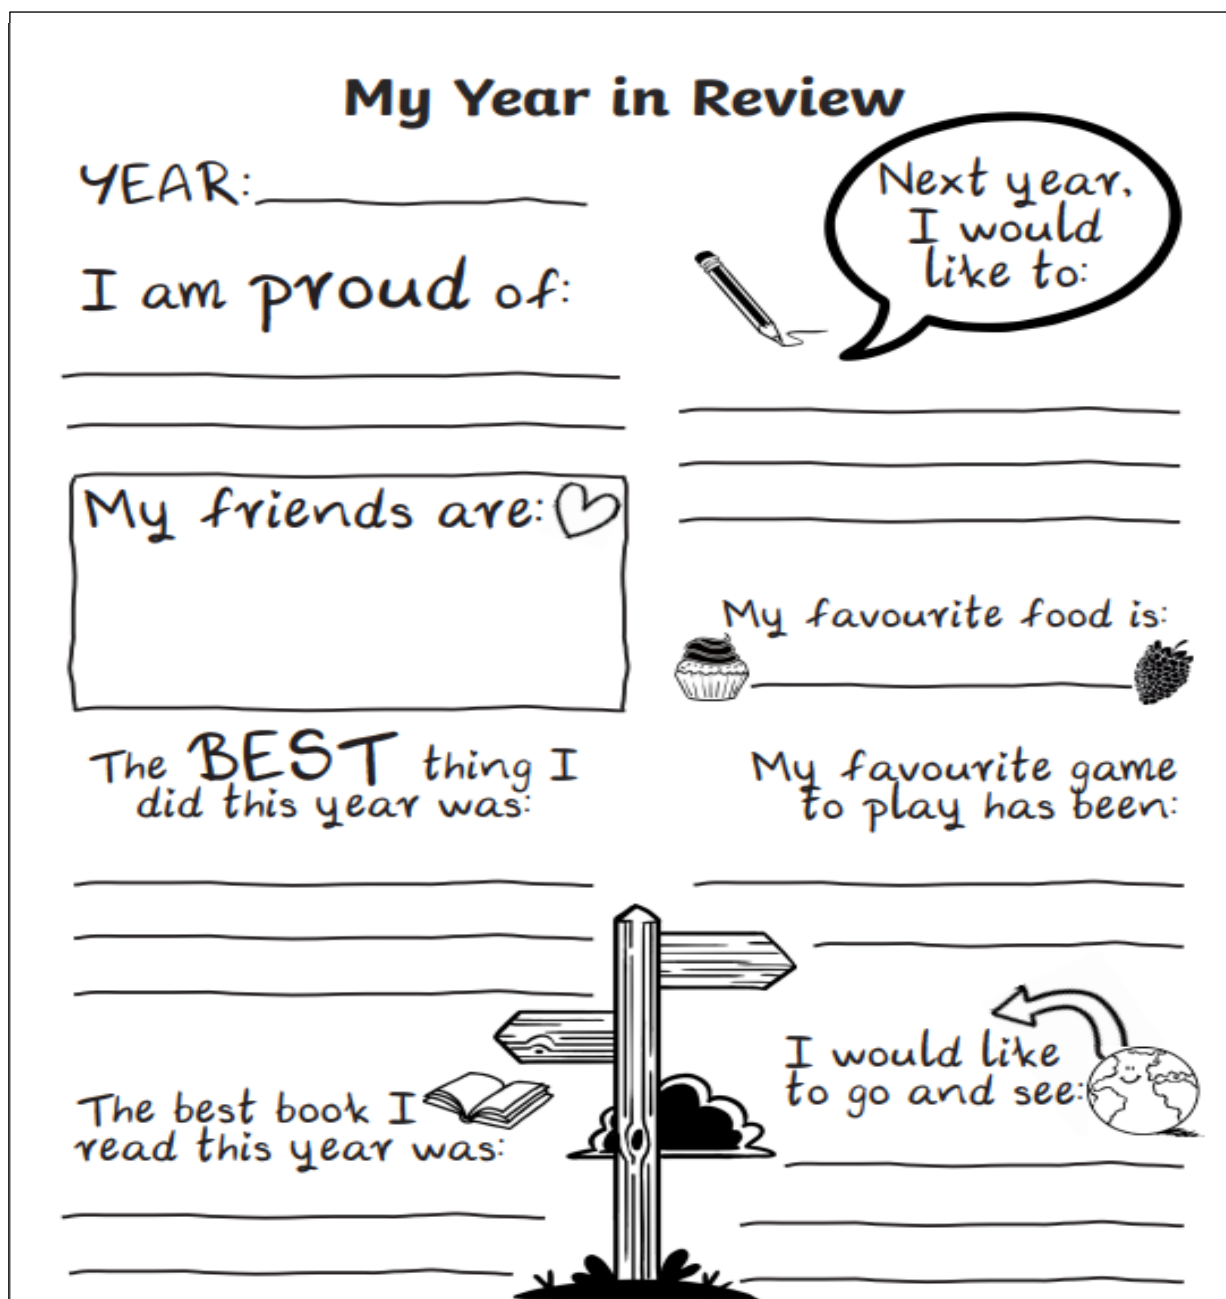 My Year in Review
YEAR:
I am proud of:
My friends are:
The BEST thing I
did this year was:
The best book I
read this year was:
Next year,
I would
like to:
My favourite food is:
My favourite game
to play has been:
I would like
to go and see: